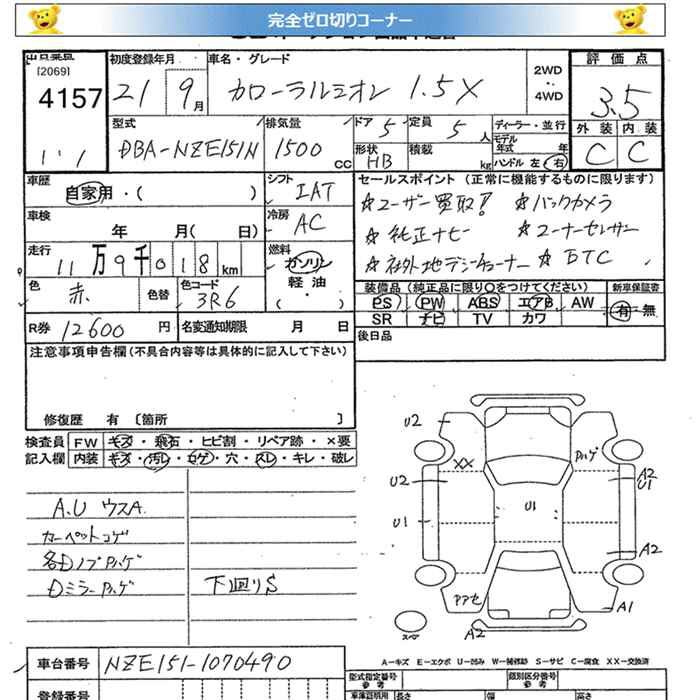 完全ゼロ切りコーナー
[2069]
4157
初度登録年月
21 9月
車名・グレード
カローラルミオン 1.5X
2WD
・・
4WD
評価点
3.5
外装 内装
C C
型式
DBA-NZE151N
排気量
1500 CC
ドア 5
定員 5 人
形状 HB
積載 kg
ディーラー・並行
モデル年式 年
ハンドル 左 右
車歴
自家用・( )
車検
年 月( 日)
走行
11万9千018km
色
赤
色替
色コード
3R6
シフト
IAT
冷房
AC
燃料
ガソリン
軽油
( ・ )
セールスポイント (正常に機能するものに限ります)
☆ユーザー買取! ☆バックカメラ
☆純正ナビー ☆コーナーセンサー
☆社外地デジチューナー ☆ETC
装備品(純正品に限り○をつけてください)
新車保証書
PS PW ABS エアB AW
SR ナビ TV カワ
有・無
R券 12600 円
名変通知期限 月 日
後日品
注意事項申告欄(不具合内容等は具体的に記入して下さい)
修復歴 有 〔箇所 〕
検査員 FW キズ・飛石・ヒビ割・リペア跡・×要
記入欄 内装 キズ・汚レ・コゲ・穴・スレ・キレ・破レ
A.U ウスA
カーペットコゲ
各Dノブハゲ
Dミラーハゲ
下廻りS
U2
XX
ハゲ
U2
A2
U1
U1
U1
A2
アセ
A1
スペア
A2
A−キズ E−エクボ U−凹み W−補修跡 S−サビ C−腐食 XX−交換済
車台番号
NZE151-1070490
登録番号
型式指定番号
参考
類別区分番号
参考
長さ
幅
高さ